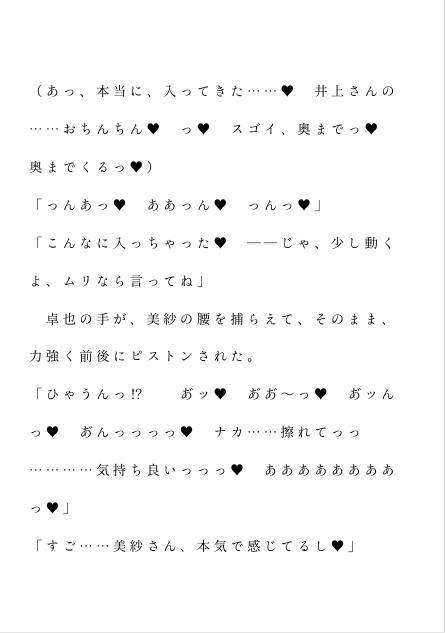 （あっ、本当に、入ってきた……♥　井上さんの
……おちんちん♥　っ♥　スゴイ、奥までっ♥
奥までくるっ♥）
「っんあっ♥　ああっん♥　っんっ♥」
「こんなに入っちゃった♥　――じゃ、少し動く
よ、ムリなら言ってね」
　卓也の手が、美紗の腰を捕らえて、そのまま、
力強く前後にピストンされた。
「ひゃうんっ!?　　あ゙ッ♥　あ゙あ゙～っ♥　あ゙ッん
っ♥　あ゙んっっっっ♥　ナカ……擦れてっっ
…………気持ち良いっっっ♥　ああああああああ
っ♥」
「すご……美紗さん、本気で感じてるし♥」